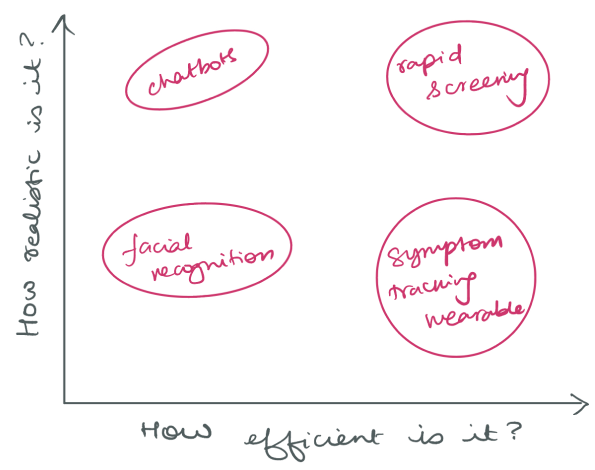 How realistic is it?
chatbots
rapid
screening
facial
recognition
symptom
tracking
wearable
How efficient is it?